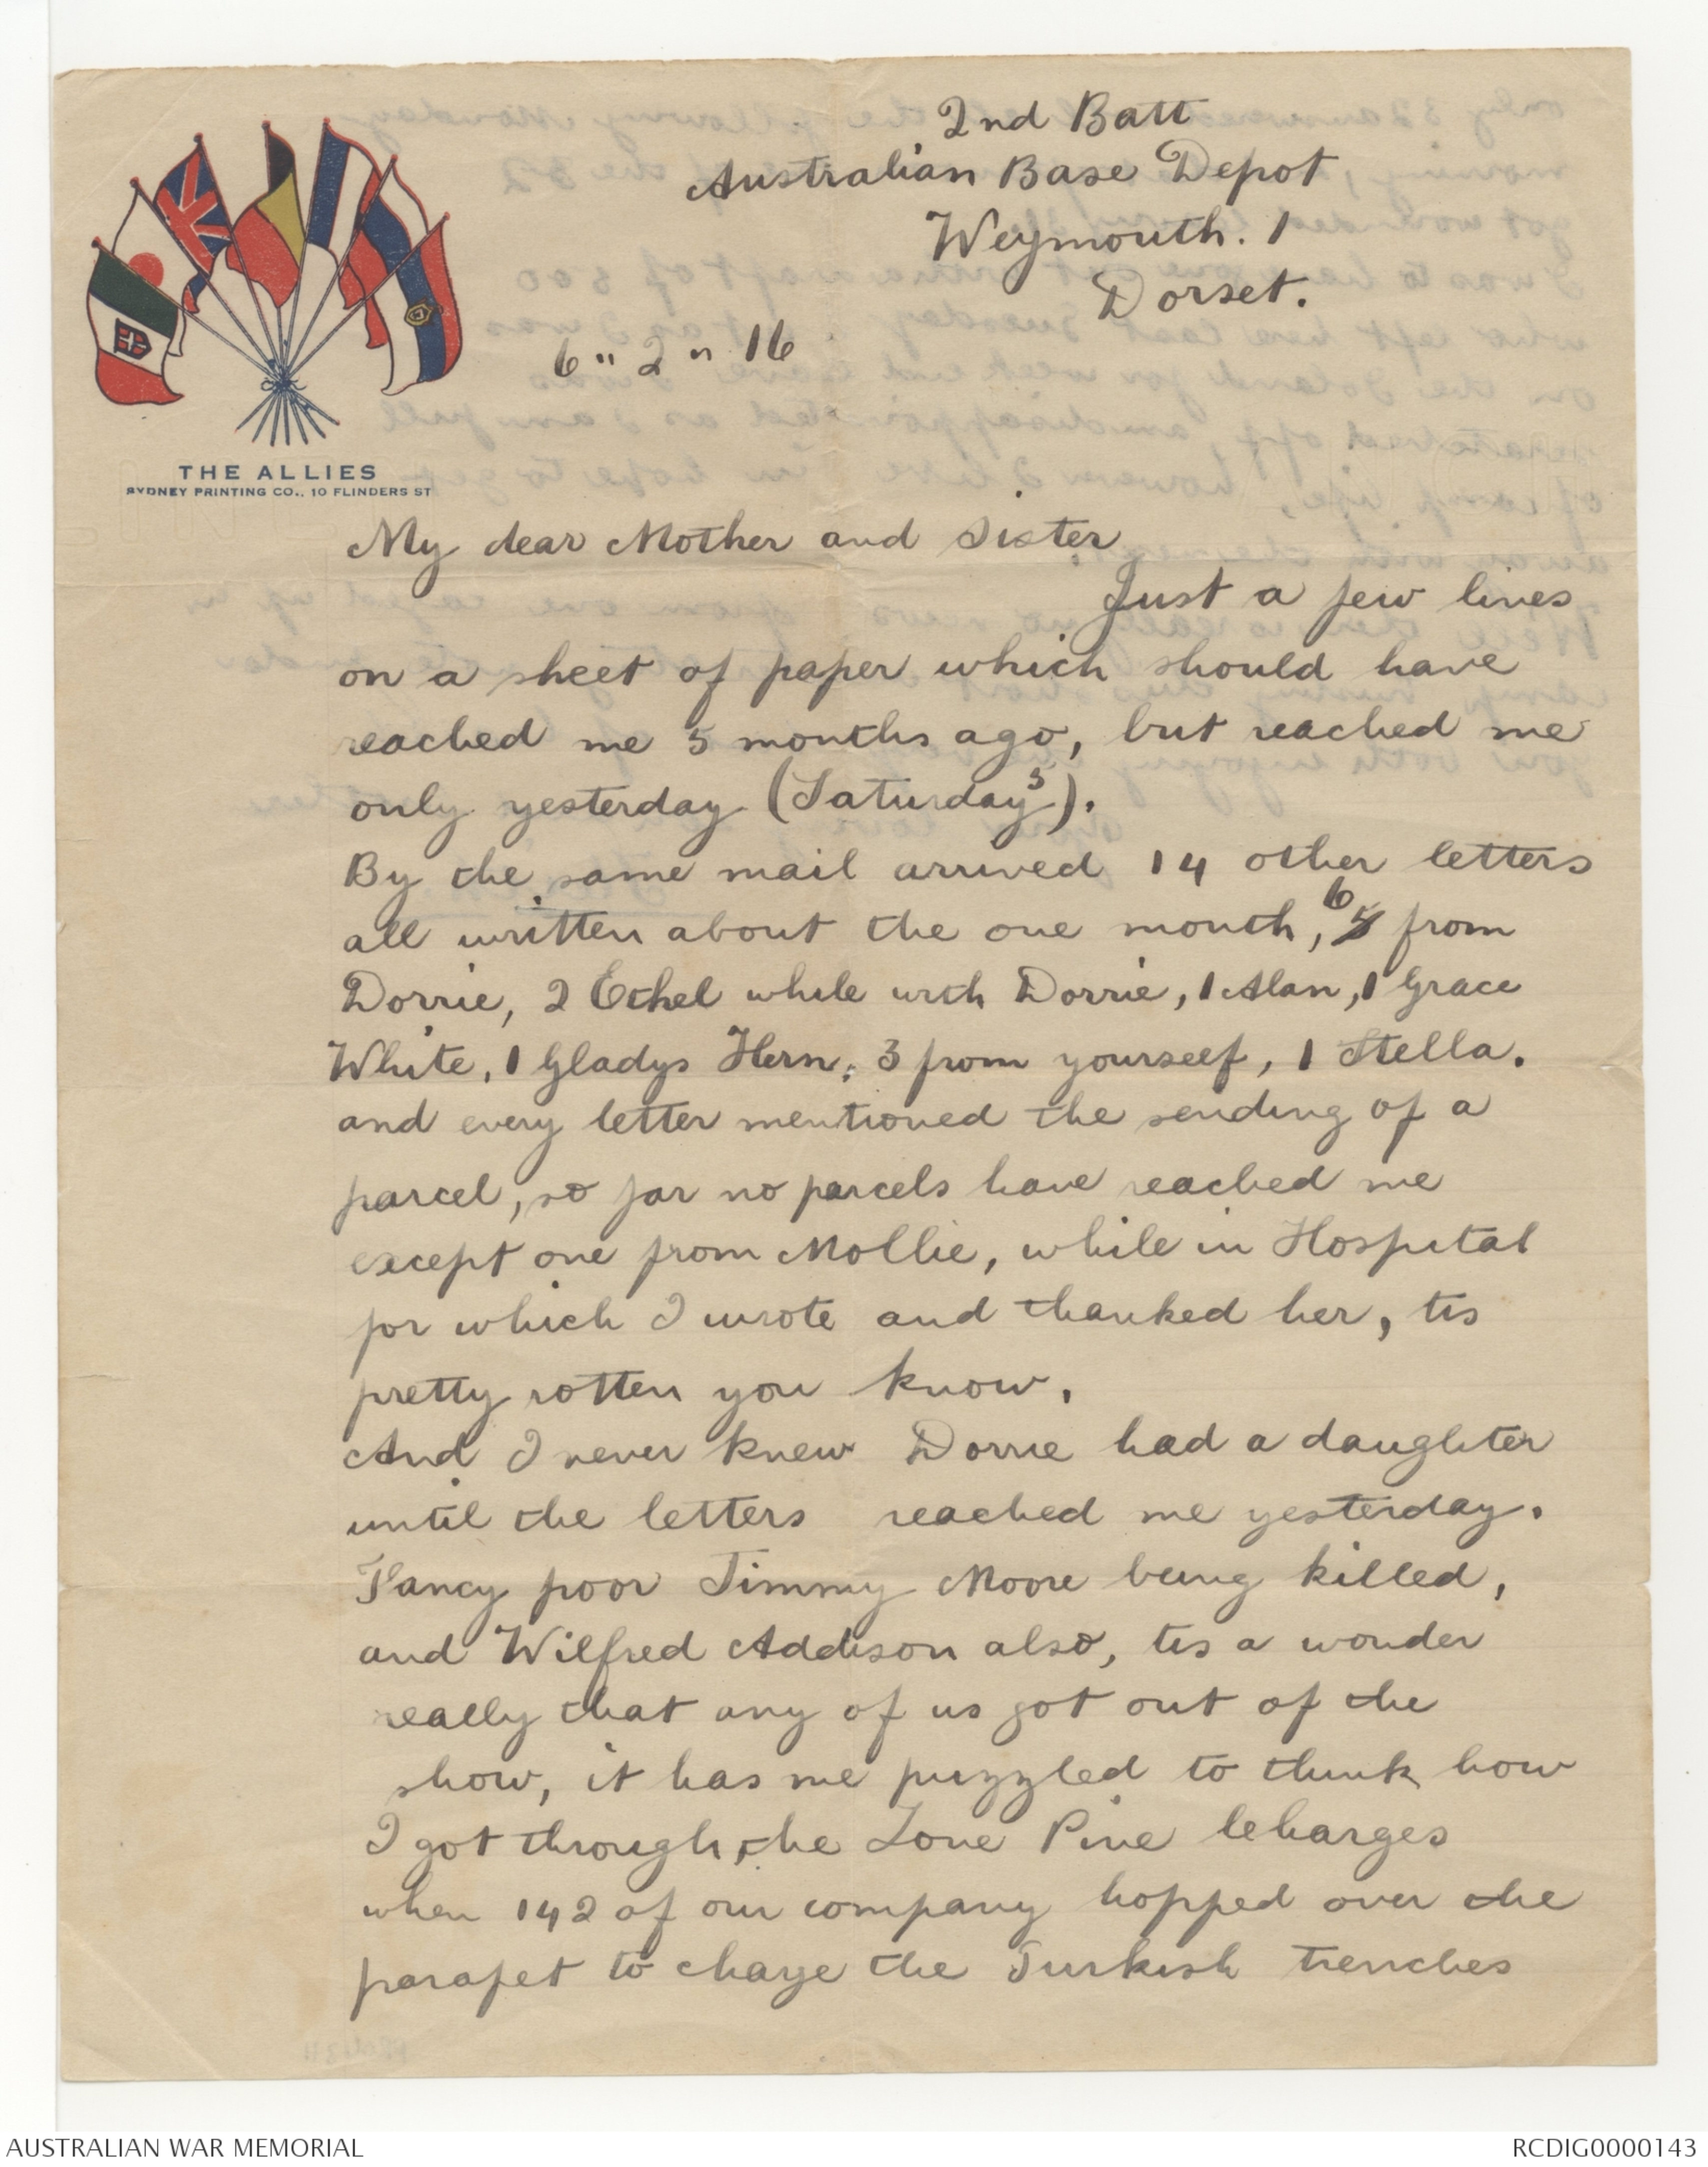 2nd Batt
Australian Base Depot
Weymouth. 1
Dorset.
6 " 2 " 16
THE ALLIES
SYDNEY PRINTING CO., 10 FLINDERS ST
My dear Mother and Sister
Just a few lines
on a sheet of paper which should have
reached me 5 months ago, but reached me
only yesterday (Saturday 5).
By the same mail arrived 14 other letters
all written about the one month, 6 from
Dorrie, 2 Ethel while with Dorrie, 1 Alan, 1 Grace
White, 1 Gladys Hern, 3 from yourself, 1 Stella.
and every letter mentioned the sending of a
parcel, so far no parcels have reached me
except one from Mollie, while in Hospital
for which I wrote and thanked her, tis
pretty rotten you know.
And I never knew Dorrie had a daughter
until the letters reached me yesterday.
Fancy poor Jimmy Moore being killed,
and Wilfred Addison also, tis a wonder
really that any of us got out of the
show, it has me puzzled to think how
I got through, the Lone Pine Charges
when 142 of our company hopped over the
parapet to charge the Turkish trenches
AUSTRALIAN WAR MEMORIAL
RCDIG0000143